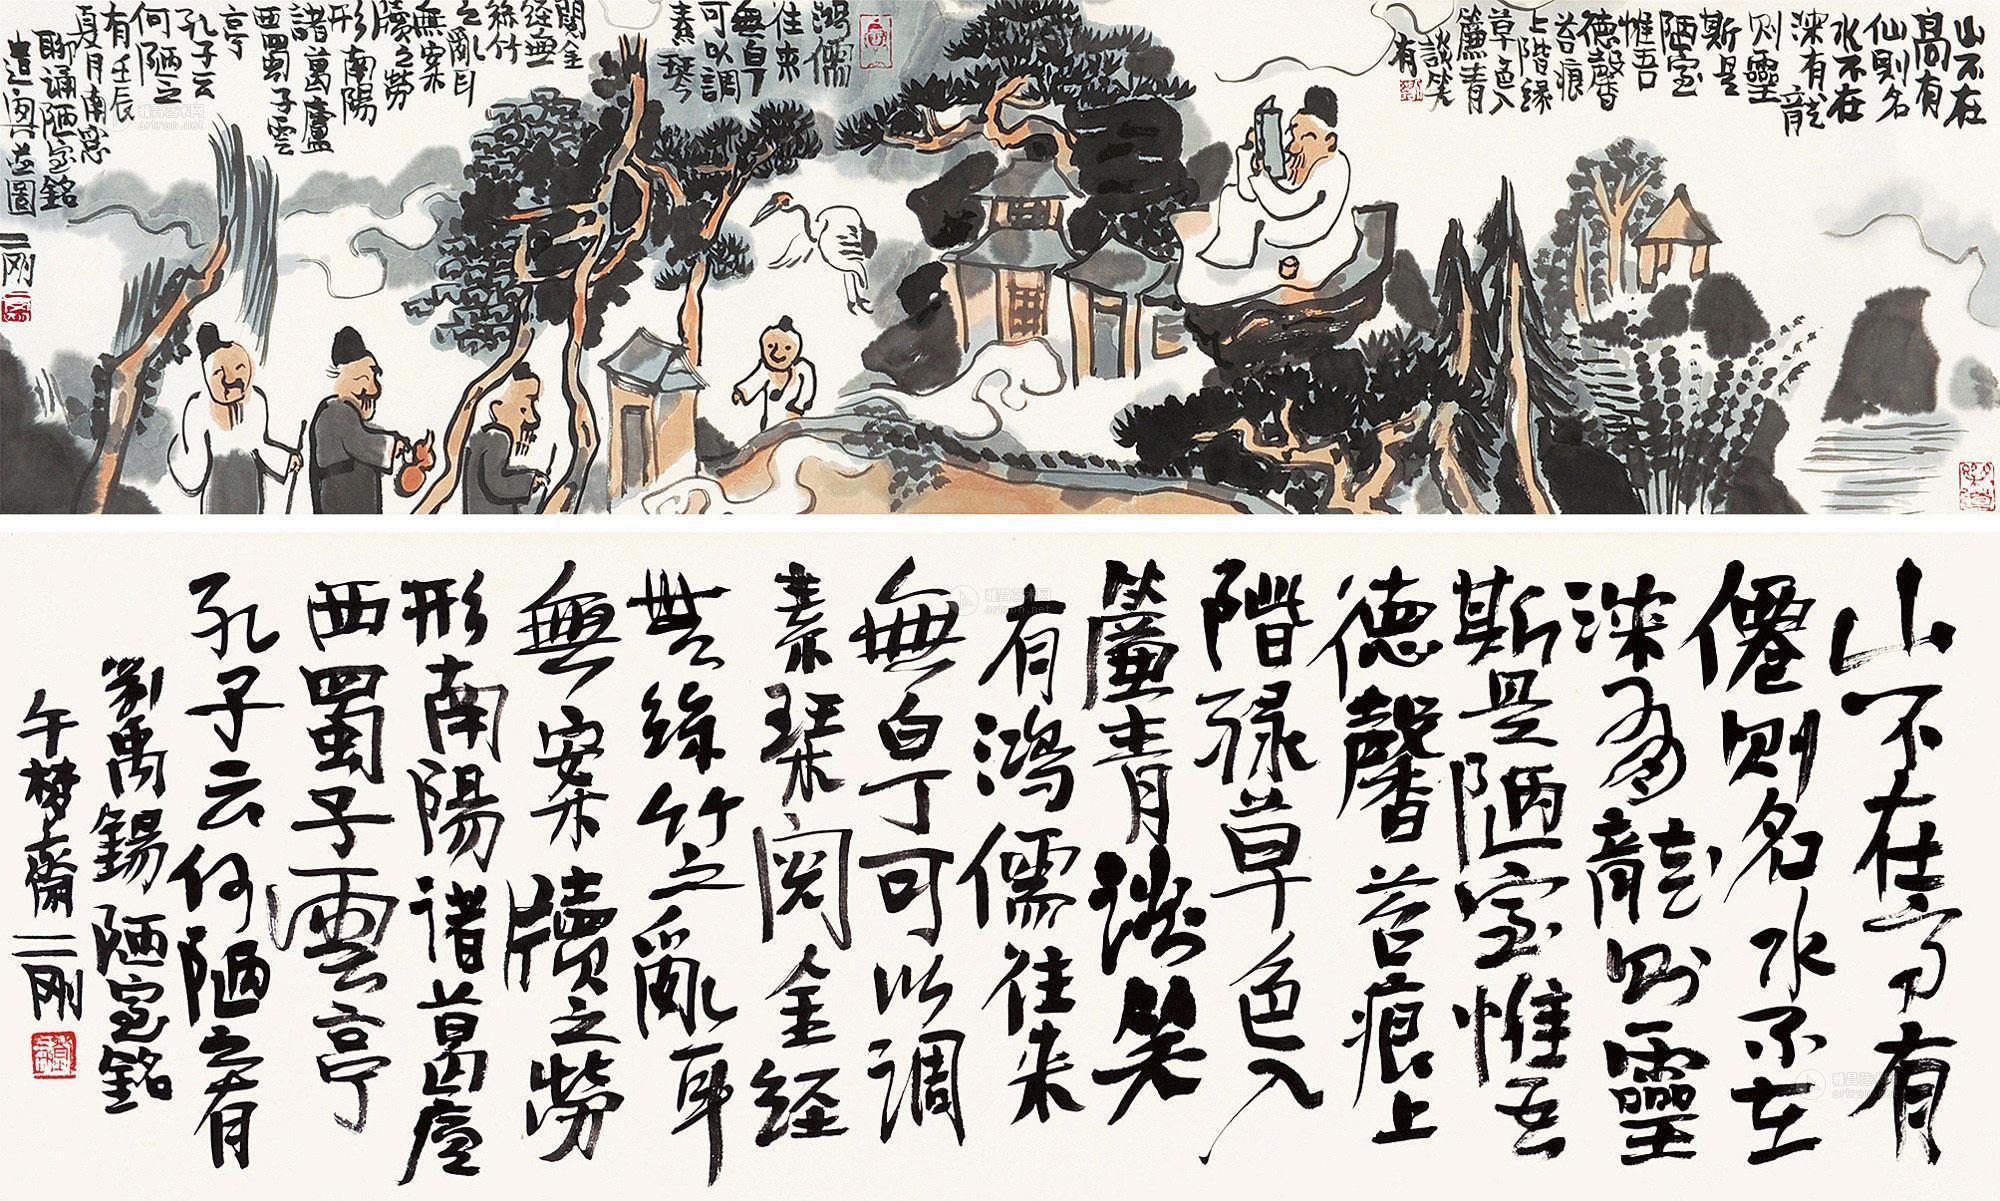 山不在
高有
仙則名
水不在
深有龍
則靈
斯是
陋室
惟吾
德馨
苔痕
上階綠
草色入
簾青
談笑
有
鴻儒
往來
無白丁
可以調
素琴
閱金
經無
絲竹
之亂耳
無案
牘之勞
形南陽
諸葛廬
西蜀子雲
亭
孔子云
何陋之
有壬辰
夏月南窓
聊誦陋室銘
遣閑並圖
二刚
山不在高有
僊則名水不在
深有龍則靈
斯是陋室惟吾
德馨苔痕上
階綠草色入
簾青談笑
有鴻儒往來
無白丁可以調
素琴閱金経
無絲竹之亂耳
無案牘之勞
形南陽諸葛廬
西蜀子雲亭
孔子云何陋之有
劉禹錫陋室銘
午夢齋二刚
雅昌艺术网
artron.net